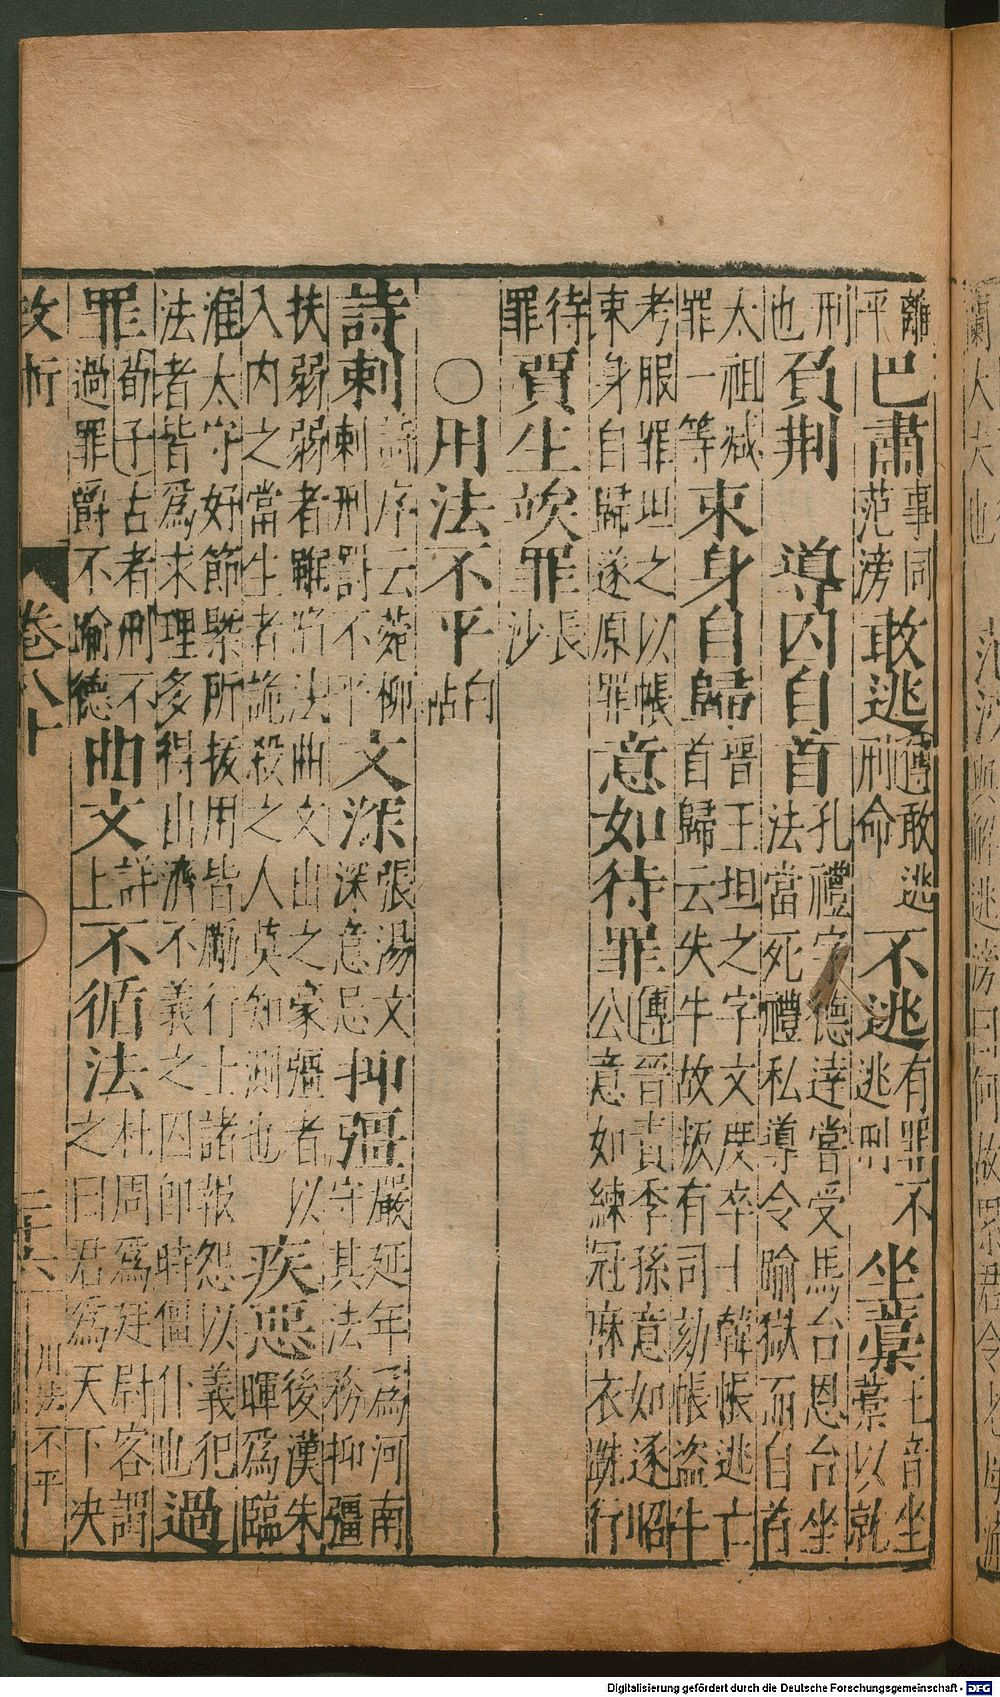 離平巴肅事同范滂敢逃適敢逃刑命不逃有罪不逃刑坐藁王音坐藁以就
刑也負荊 導囚自首孔禮字德達嘗受馬台恩台坐法當死禮私導令踰獄而自首
太祖減罪一等束身自歸晉王坦之字文度卒士韓帳逃亡首歸云失牛故叛有司劾帳盜牛
考服罪坦之以帳束身自歸遂原罪意如待罪傳晉責季孫意如逐昭公意如練冠麻衣跣行
待罪賈生竢罪長沙
○用法不平白帖
詩刺詩序云菀柳刺刑罰不平文深張湯文深意忌抑彊嚴延年爲河南守其法務抑彊
扶弱弱者雖陷法曲文出之豪彊者以入內之當生者詭殺之人莫知測也疾惡後漢朱暉爲臨
淮太守好節槩所拔用皆厲行士諸報怨以義犯法者皆爲求理多得出濟不義之囚即時僵仆也過
罪荀子古者刑不過罪爵不踰德曲文詳上不循法杜周爲廷尉客謂之曰君爲天下决
卷八十 二十六 用法不平
Digitalisierung gefördert durch die Deutsche Forschungsgemeinschaft - DFG